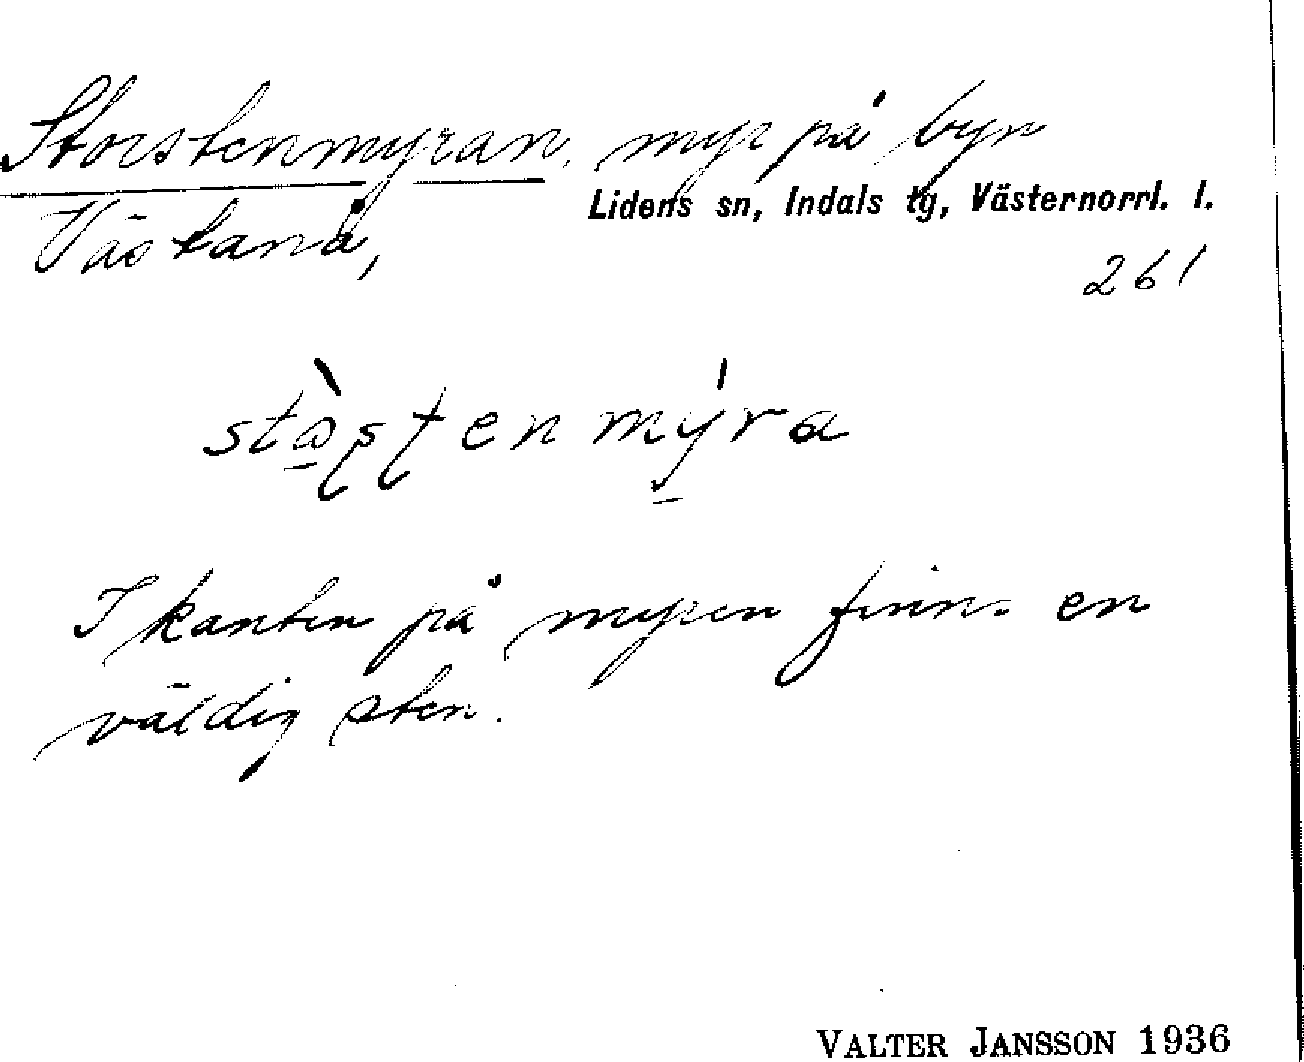 Storstenmyran, myr på byn
Lidens sn, Indals tg, Västernorrl. l.
Västanå,
261
I kanten på myren finns en
väldig sten.
VALTER JANSSON 1936